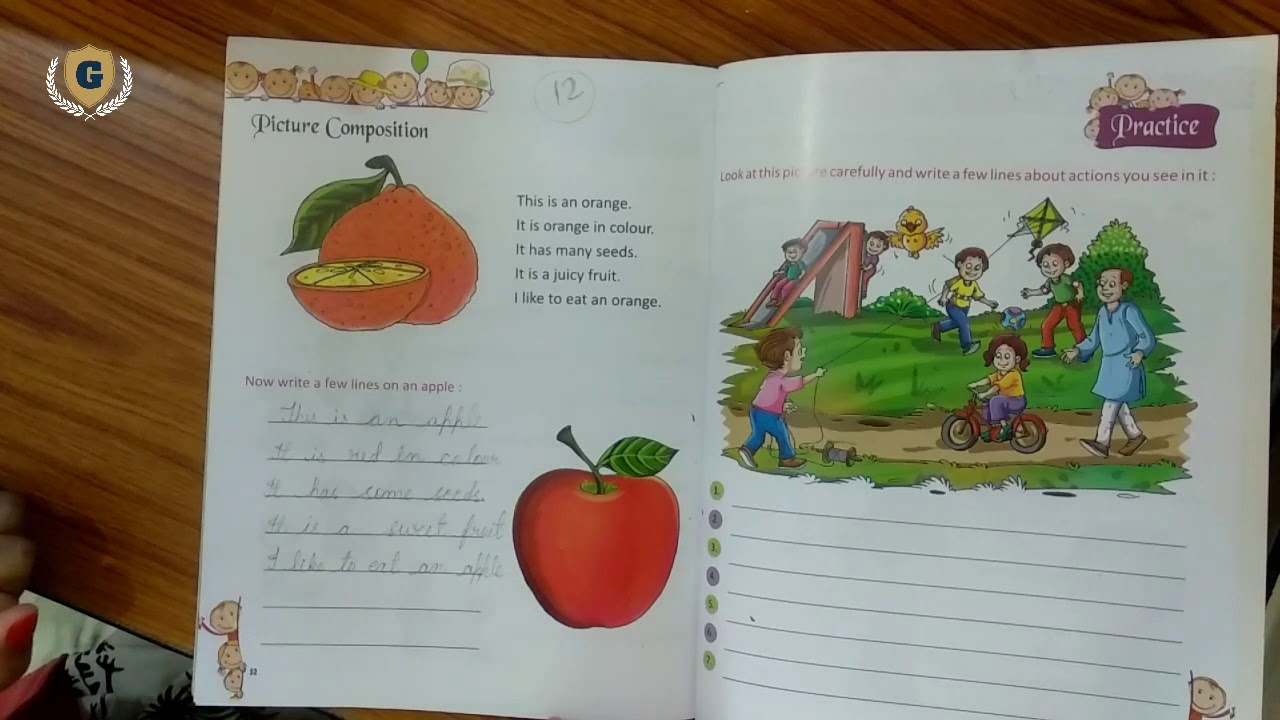 G
12
Picture Composition
This is an orange.
It is orange in colour.
It has many seeds.
It is a juicy fruit.
I like to eat an orange.
Now write a few lines on an apple :
This is an apple
It is red in colour
It has some seeds.
It is a sweet fruit
I like to eat an apple
52
Practice
Look at this picture carefully and write a few lines about actions you see in it :
1.
2.
3.
4.
5.
6.
7.